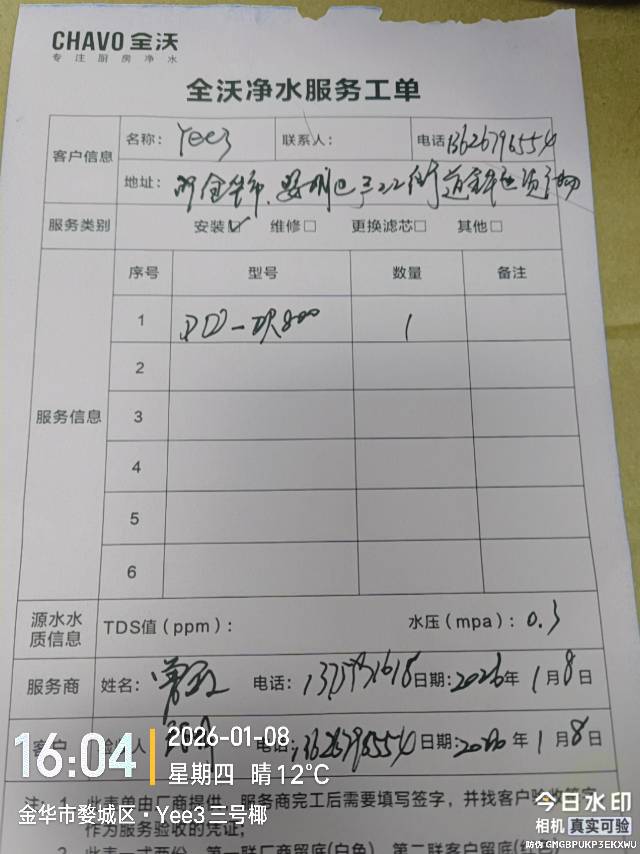 CHAVO 全沃
专注厨房净水
全沃净水服务工单
客户信息 名称: Yee3 联系人: 电话 13626796554
地址:
服务类别 安装☑ 维修☐ 更换滤芯☐ 其他☐
服务信息 序号 型号 数量 备注
1 1
2
3
4
5
6
源水水质信息 TDS值(ppm): 水压(mpa): 0.3
服务商 姓名: 电话: 日期: 2026年1月8日
客户 电话: 13626796554 日期: 2026年1月8日
16:04 2026-01-08
星期四 晴 12℃
金华市婺城区·Yee3三号椰
注: 1、此表单由厂商提供,服务商完工后需要填写签字,并找客户验收签字
作为服务验收的凭证;
2、此表一式两份,第一联厂商留底(白色),第二联客户留底(红色)
今日水印
相机 真实可验
防伪 GMGBPUKP3EKXWU